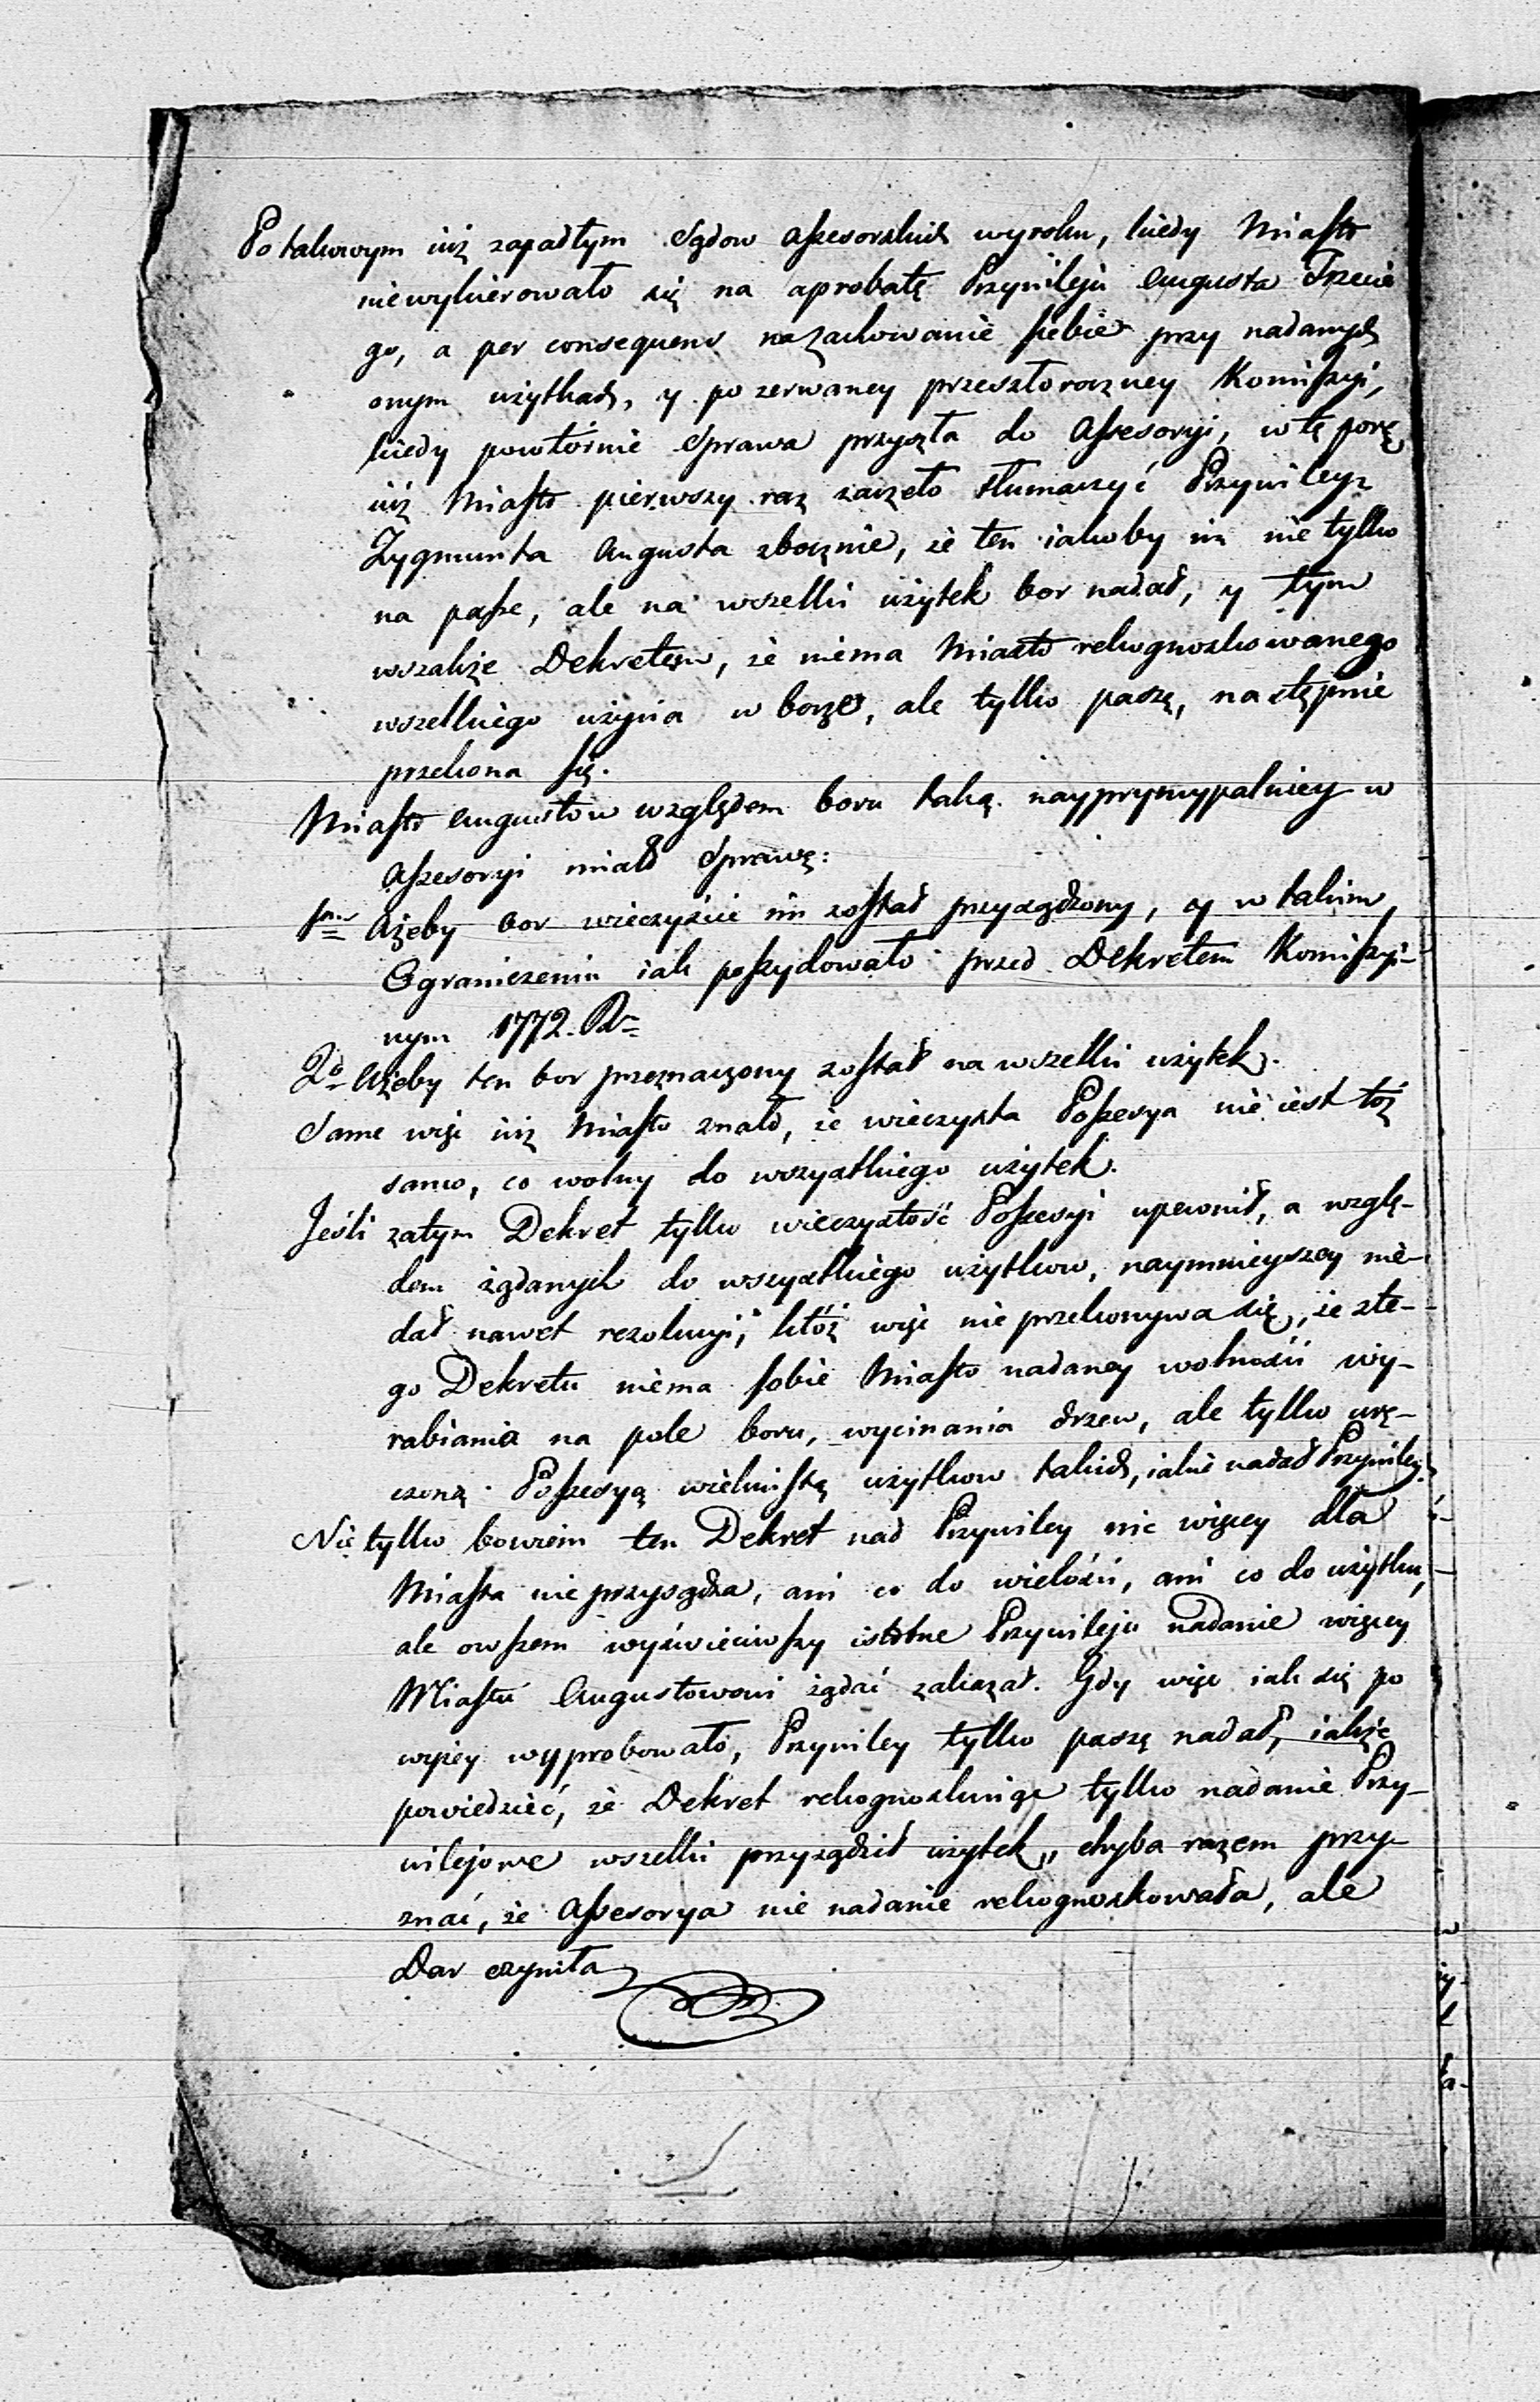 Po takowym iuż zapadłym Sądow Assesorskich wyroku, kiedy Miasto
niewykierowało się na aprobatę Przywileju Augusta Trzecie
go, a per consequens na zachowanie siebie przy nadanych
onym użytkach, y po zerwaney przeszłoroczney Kommissyi,
kiedy powtórnie Sprawa przyszła do Assesoryi, w tę porę
iuż Miasto pierwszy raz zaczeło tłumaczyć Przywiley
Zygmunta Augusta zbocznie, że ten iakoby im nie tylko
na pasze, ale na wszelki użytek bor nadał, y tym
wszakże Dekretem, że niema Miasto rekognoskowanego
wszelkiego użycia w borze, ale tylko paszę, następnie
przekona się.
Miasto Augustow względem boru taką naypryncypalniey w
Assesoryi miało Sprawę:
1mo Ażeby bor wieczyście im został przysądzony, y w takim
Ograniczeniu iak possydowało przed Dekretem Kommissyi-
nym 1772. R=
2do Ażeby ten bor przeznaczony został na wszelki użytek.
Same więc iuż Miasto znało, że wieczysta Possesya nie iest toż
samo, co wolny do wszystkiego użytek.
Jeśli zatym Dekret tylko wieczystość Possesyi upewnił, a wzglę-
dem żądanych do wszystkiego użytkow, naymnieyszey nie-
dał nawet rezolucyi, któż więc nie przekonywa się, że z te-
go Dekretu niema sobie Miasto nadaney wolności wy-
rabiania na pole boru, wycinania drzew, ale tylko urę-
czoną Possesyą wiekuistą użytkow takich, iakie nadał Przywiley.
Nie tylko bowiem ten Dekret nad Przywiley nic więcey dla
Miasta nie przysądza, ani co do wielości, ani co do użytku,
ale owszem wyświeciwszy istotne Przywileju nadanie więcey
Miastu Augustowowi żądać zakazał. Gdy więc iak się po
wyżey wyprobowało, Przywiley tylko paszę nadał, iakże
powiedzieć, że Dekret rekognoskuiąc tylko nadanie Przy-
wilejowe wszelki przysądził użytek, chyba razem przy-
znać, że Assesorya nie nadanie rekognoskowała, ale
Dar czyniła